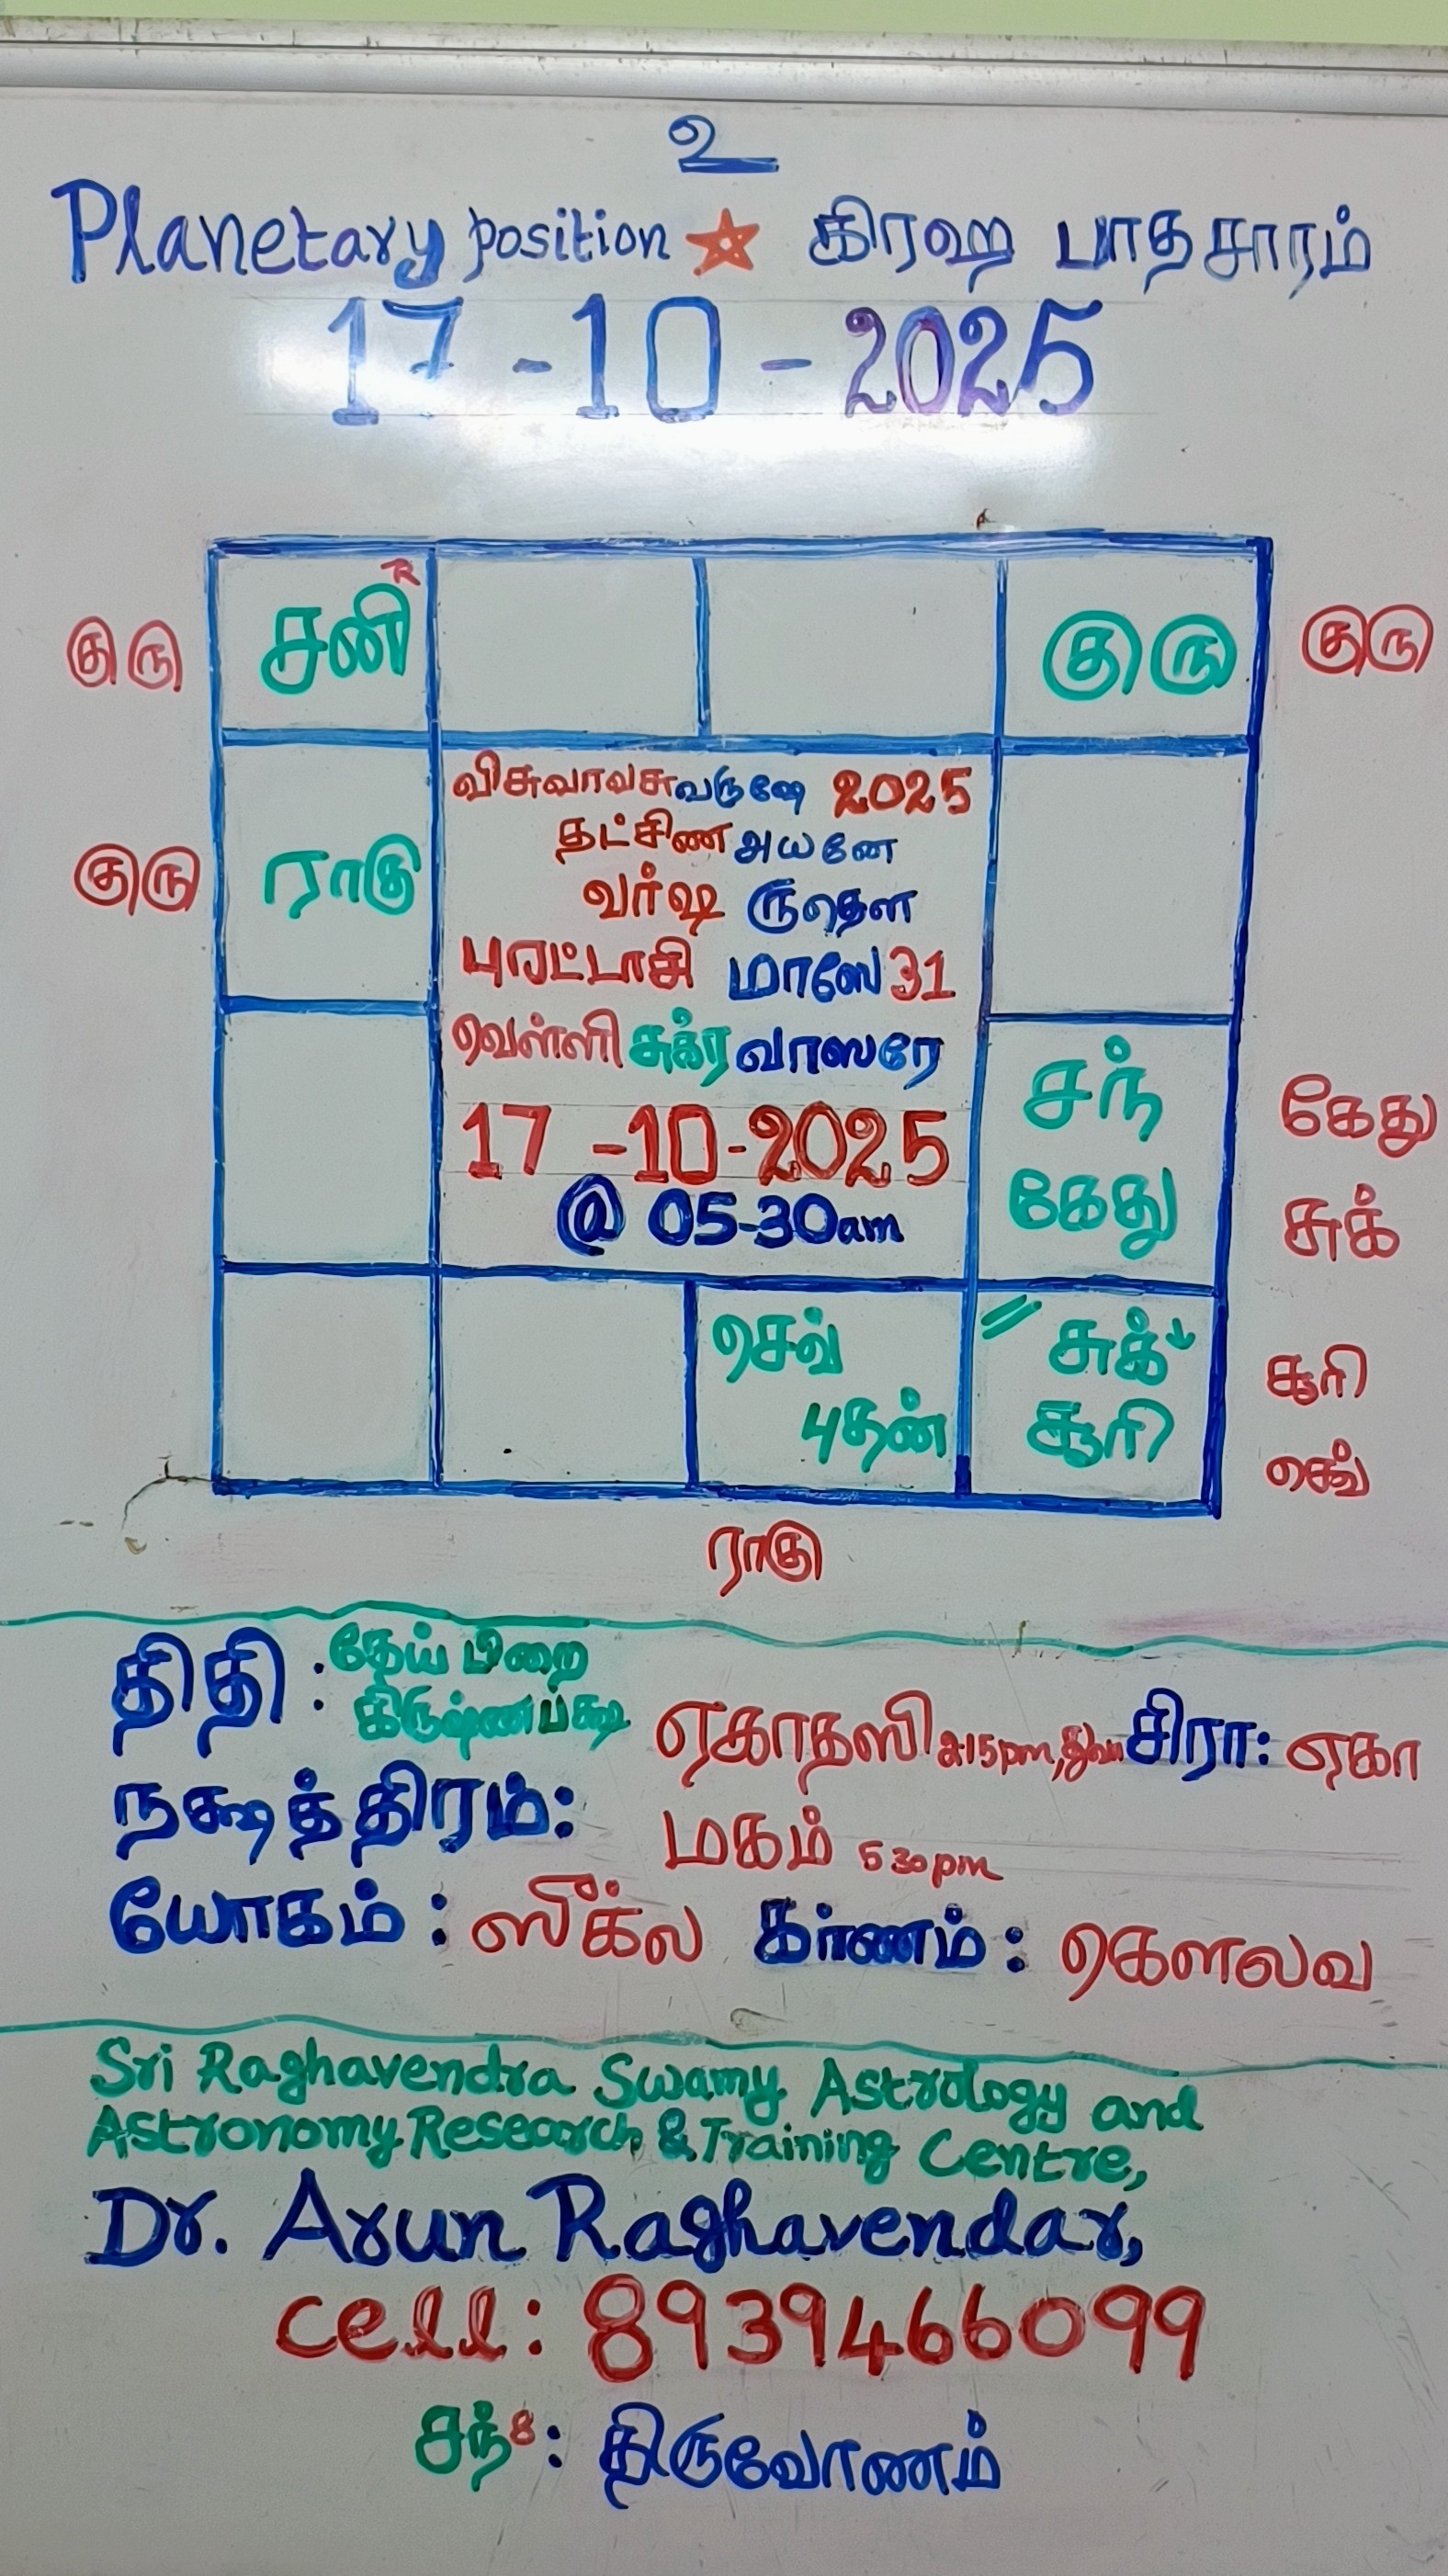 உ
Planetary position ☆ கிரஹ பாதசாரம்
17-10-2025
R
குரு சனி குரு குரு
விசுவாவசு வருஷே 2025
தட்சிண அயனே
குரு ராகு வர்ஷ ருதௌ
புரட்டாசி மாஸே 31
வெள்ளி சுக்ர வாஸரே
சந் கேது
17-10-2025
கேது சுக்
@ 05-30am
செவ் சுக் சூரி
புதன் சூரி செவ்
ராகு
திதி : தேய்பிறை
கிருஷ்ணபக்ஷ ஏகாதஸி 2.15pm, துவா சிரா: ஏகா
நக்ஷத்திரம்: மகம் 5 30pm
யோகம் : ஸீக்ல கர்ணம் : கௌலவ
Sri Raghavendra Swamy Astrology and
Astronomy Research & Training Centre,
Dr. Arun Raghavendar,
cell: 8939466099
சந்8: திருவோணம்